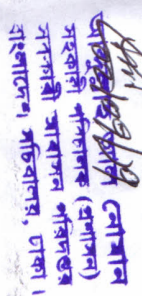 নোমান
সহকারী পরিচালক (প্রশাসন)
সরকারী আবাসন পরিদপ্তর
বাংলাদেশ সচিবালয়, ঢাকা।